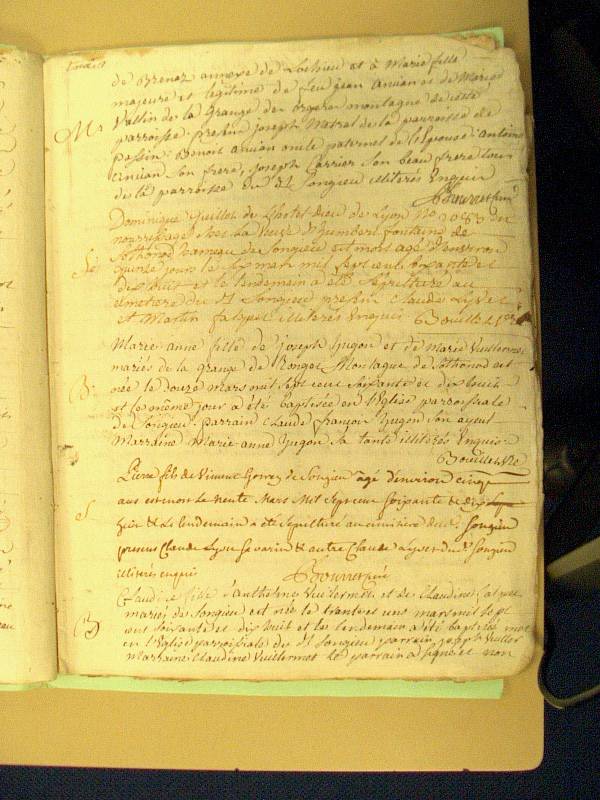 de Brenaz annexe de Lochieu et à Marie fille
majeure et legitime de feu jean ancian et de Marie
Vallin de la Grange des montagne de cette
M parroisse. presens joseph Matral de la parroisse de
Benoit ancian oncle paternel de l'Epouse: Antoine
ancian son frere, joseph Carrier son beau frere tous
de la parroisse du dt Songieu illiterés Enquis
Bouvret
Dominique Guillet de l'hotel dieu de Lyon No 2083 en
nourrissage chez la Veuve d'humbert fontaine de
Sothonod hameau de Songieu est mort agé d'environ
S quinze jours le mars mil sept cent soixante et
dix huit et le lendemain a été sepulturé au
cimetiere du dt Songieu presens Claude Lyvet
et Martin falquet illiterés Enquis. Bouillet vre
Marie anne fille de joseph jugon et de Marie Vuillermet
mariés de la grange de Ronget Montagne de Sothonod est
B. née le douze mars mil sept cent soixante et dix huit
et le même jour a été baptisée en l'Eglise parroissiale
de Songieu. parrain Claude françois jugon son ayeul
Marraine Marie anne jugon sa tante illiterés Enquis.
Bouillet vre
Pierre fils de Vincent de Songieu agé d'environ cinq
ans est mort le trente Mars Mil Sept cent soixante & dix
S huit & Le lendemain a été sepulturé au cimitiere du dt Songieu
presens Claude & autre Claude Lyvet du dt Songieu
illiterés enquis Bouvret curé
Claudine fille d'Anthelme Vuillermet et de Claudine falquet
mariés de Songieu est née le trente et un mars mil sept
B cent soixante et dix huit et le lendemain a été baptisée
en l'Eglise parroissiale du dt Songieu parrain joseph Vuiller
marraine Claudine Vuillermet le parrain a signé et non